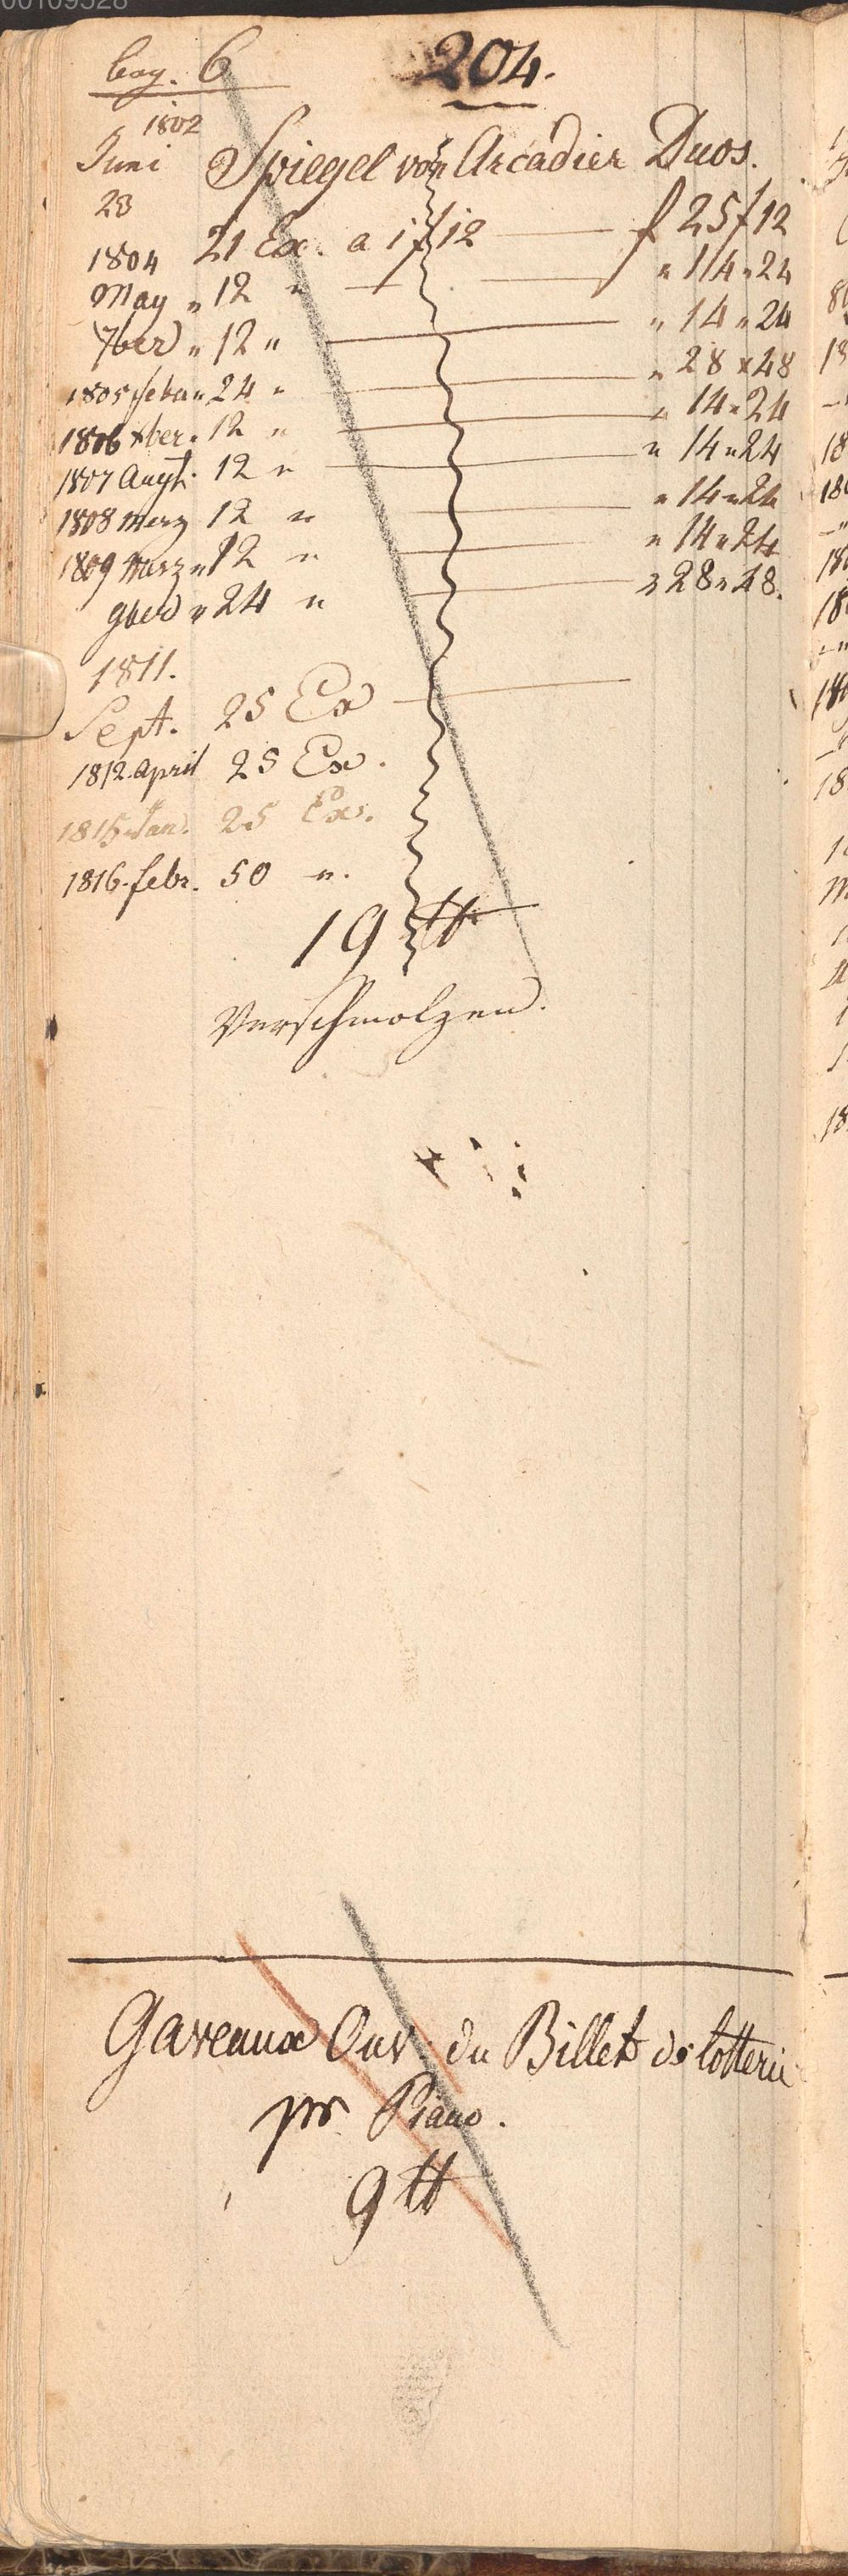 bog. 6
204.
1802
Juni Spiegel von Arcadier Duos.
23
21 Ex. a 1f12 f 25f12
1804
May " 12 " " 14 " 24
7ber " 12 " " 14 " 24
1805 febr " 24 " " 28 x 48
1806 xber " 12 " " 14 " 24
1807 Augt. 12 " " 14 " 24
1808 Merz 12 " " 14 " 24
1809 Merz " 12 " " 14 " 24
9ber " 24 " " 28 " 48.
1811.
Sept. 25 Ex
1812. april 25 Ex.
1815. Jan. 25 Exs.
1816. febr. 50 ".
19 tt
Verschmolzen.
Gaveaux Ouv. du Billet de lotterie
pr Piano.
9 tt